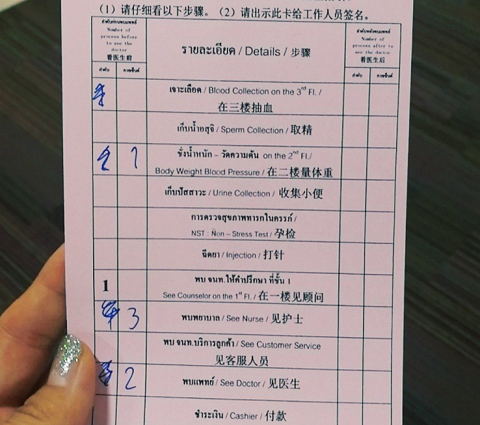 (1) 请仔细看以下步骤。(2) 请出示此卡给工作人员签名。
ลำดับก่อนพบแพทย์
Number of process before to see the doctor
看医生前
รายละเอียด / Details / 步骤
ลำดับหลังพบแพทย์
Number of process after to see the doctor
看医生后
เจาะเลือด / Blood Collection on the 3rd Fl. /
在三楼抽血
เก็บน้ำอสุจิ / Sperm Collection / 取精
1
ชั่งน้ำหนัก - วัดความดัน on the 2nd Fl./
Body Weight Blood Pressure / 在二楼量体重
เก็บปัสสาวะ / Urine Collection / 收集小便
การตรวจสุขภาพทารกในครรภ์ /
NST : Non - Stress Test / 孕检
ฉีดยา / Injection / 打针
1
พบ จนท.ให้คำปรึกษา ที่ชั้น 1
See Counselor on the 1st Fl. / 在一楼见顾问
3
พบพยาบาล / See Nurse / 见护士
พบ จนท.บริการลูกค้า / See Customer Service
见客服人员
2
พบแพทย์ / See Doctor / 见医生
ชำระเงิน / Cashier / 付款